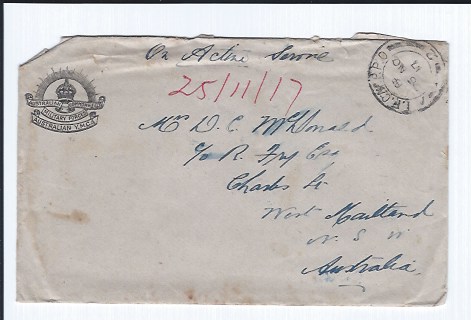 On Active Service
25/11/17
AUSTRALIAN COMMONWEALTH
MILITARY FORCES
AUSTRALIAN Y.M.C.A.
Mrs D. C. McDonald
c/o R. Fry Esq
Charles St
West Maitland
N S W
Australia